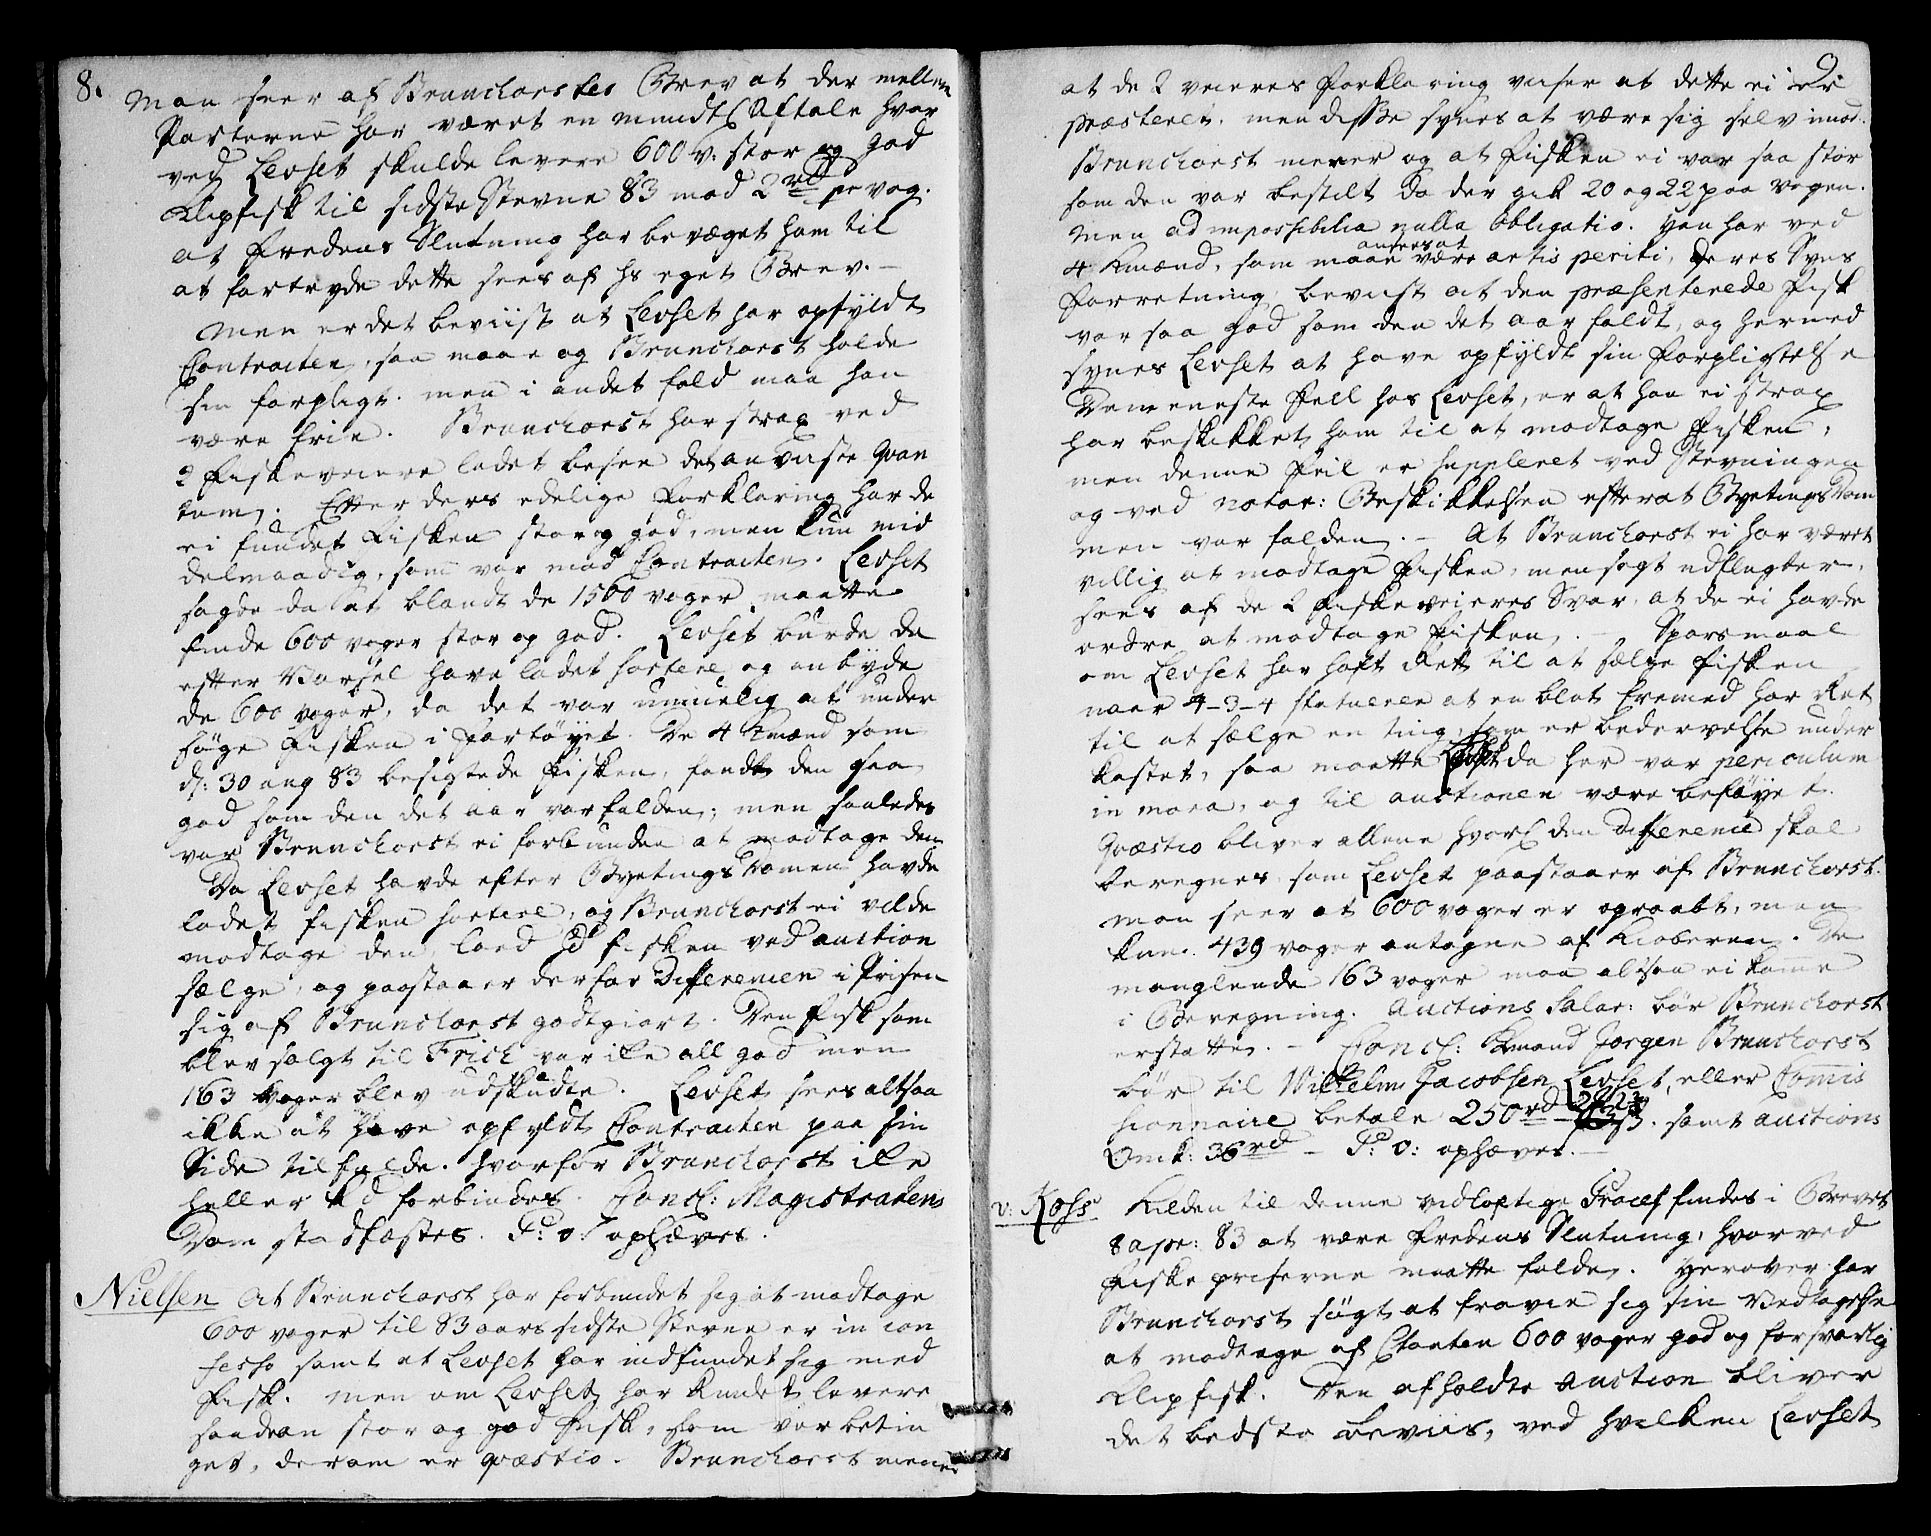 8.
Man seer af Brunchorstes Brev at der mellem
Parterne har været en mundtl. Aftale hvor
ved Levset skulde levere 600 v: stor og god
Klipfisk til sidste Stevne 83 mod 2 rd pr vog.
at Fredens Slutning har bevæget ham til
at fortryde dette sees af hs eget Brev. -
Men er det beviist at Levset har opfyldt
Contracten, saa maae og Brunchorst holde
sin forpligt. men i andet fald maa han
være frie. Brunchorst har strax ved
2 Fiskeveiere ladet besee det anviiste Qvan
tum. Efter ders edelige Forklaring har de
ei fundet Fisken stor og god, men kun mid
delmaadig, som var mod Contracten. Levset
sagde da at blandt de 1500 voger maatte
finde 600 voger stor og god. Levset burde da
efter Varsel have ladet sortere og anbyde
de 600 voger, da det var umuelig at under
søge Fisken i Fartøyet. De 4 Kmænd som
d: 30 aug 83 besigtede Fisken, fandt den saa
god som den det aar var falden; men saaledes
var Brunchorst ei forbunden at modtage den
Da Levset havde efter Bytings Domen havde
ladet fisken sortere, og Brunchorst ei vilde
modtage den, loed hd fisken ved auction
sælge, og paastaaer derfor Differencen i Prisen
sig af Brunchorst godtgiort. Den fisk som
blev solgt til Frich var ikke all god men
163 voger blev udskudte. Levset sees altsaa
ikke at have opfyldt Contracten paa sin
Side tilfulde. hvorfor Brunchorst ikke
heller kd forbindes. Concl: Magistratens
Dom stadfæstes. P: o: ophæves.
Nielsen At Brunchorst har forbundet sig at modtage
600 voger til 83 aars sidste Stevne er in con
fesso samt at Levset har indfundet sig med
Fisk. men om Levset har kundet levere
saadan stor og god fisk, som var betin
get, derom er qvæstio. Brunchorst mener
9.
at de 2 veieres Forklaring viser at dette ei er
præsteret. men disse synes at være sig selv imod.
Brunchorst mener og at Fisken ei var saa stor
som den var bestilt da der gik 20 og 22 paa vogen.
Men ad impossibilia nulla obligatio. han har ved
ansees at
4 Kmænd, som maae være artis periti, deres Syns
Forretning, beviist at den præsenterede Fisk
var saa god som den det aar faldt, og hermed
synes Levset at have opfyldt sin Forpligtelse
Den eneste Feil hos Levset, er at han ei strax
har beskikket ham til at modtage Fisken,
men denne Feil er suppleret ved Stevningen
og ved notar: Beskikkelsen efterat Bytings Dom
men var falden. - At Brunchorst ei har været
villig at modtage Fisken, men søgt udflugter,
sees af de 2 Fiskeveieres Svar, at de ei havde
ordre at modtage Fisken. - Spørsmaal
om Levset har haft Ret til at sælge fisken
naar 4-3-4 statuerer at en blot Fremmed har Ret
til at sælge en ting, som er bedervelse under
kastet, saa maatte Levset da her var periculum
in mora, og til auctionen være beføyet.
Qvæstio bliver allene hvorl. den Difference skal
beregnes som Levset paastaaer af Brunchorst.
man seer at 600 voger er opraabt, men
kun. 439 voger antagne af Kioberen. De
manglende 163 voger maa altsaa ei komme
i Beregning. Auctions Salar: bør Brunchorst
erstatte. - Concl: Kmand Jørgen Brunchorst
bør til Wilhelm Jacobsen Levset eller Comis
sionnaire betale 250 rd samt auctions
Omk: 36 rd - P: o: ophæves. -
v: Koss Kilden til denne vidløftige Process findes i Brevet
8 apr: 83 at være Fredens Slutning, hvorved
Fiske priserne maatte falde. Herover har
Brunchorst søgt at fravie sig sin Vedtagelse
at modtage af Citanten 600 voger god og forsvarlig
Klipfisk. Den afholdte Auction bliver
det bedste Beviis, ved hvilken Levset